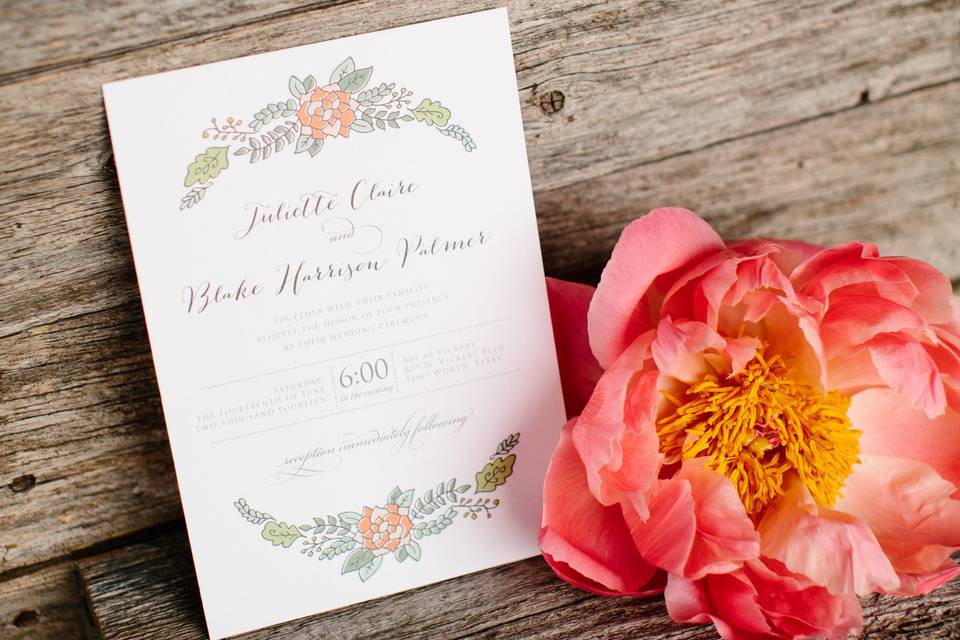 Juliette Claire
and
Blake Harrison Palmer
TOGETHER WITH THEIR FAMILIES
REQUEST THE HONOR OF YOUR PRESENCE
AT THEIR WEDDING CEREMONY
SATURDAY
THE FOURTEENTH OF JUNE
TWO THOUSAND FOURTEEN
6:00
in the evening
809 AT VICKERY
809 W VICKERY BLVD
FORT WORTH, TEXAS
reception immediately following